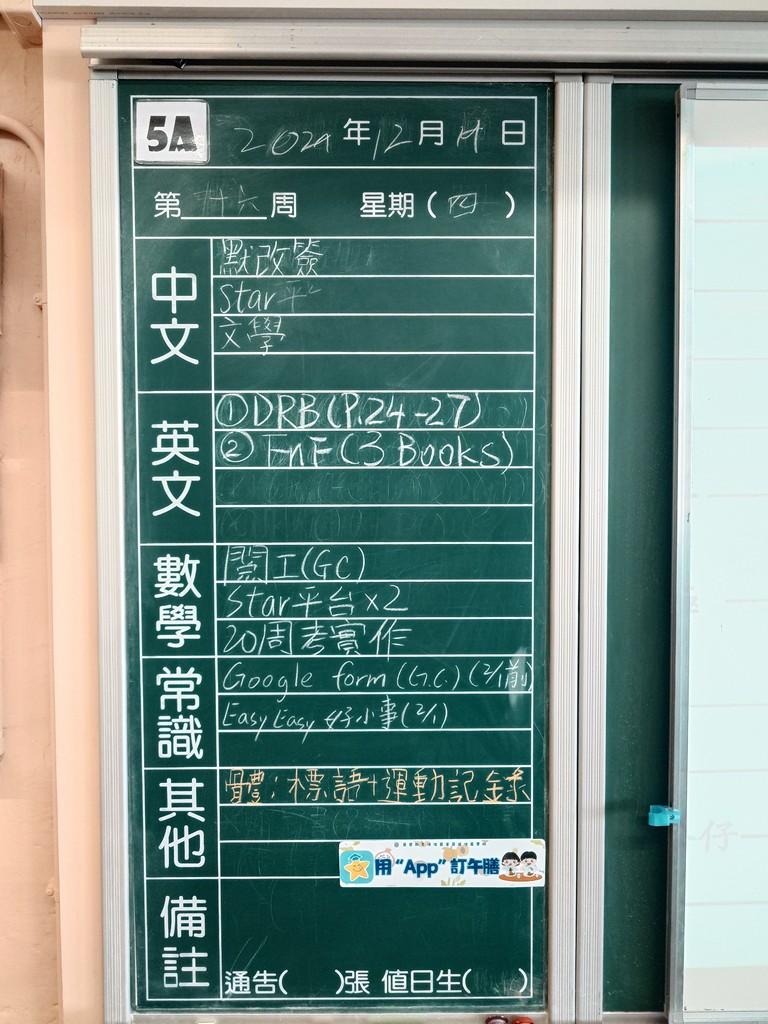 5A 2024 年 12 月 19 日
第 十六 周 星期 ( 四 )
中文
默改簽
Star平
文學
英文
①DRB(P.24-27)
② FnF(3 Books)
數學
工(GC)
Star平台x2
20周考實作
常識
Google form (G.C.) (2/1前)
EasyEasy 好小事(2/1)
其他
體:標語+運動記錄
用“App”訂午膳
備註
通告( )張 值日生( )
仔